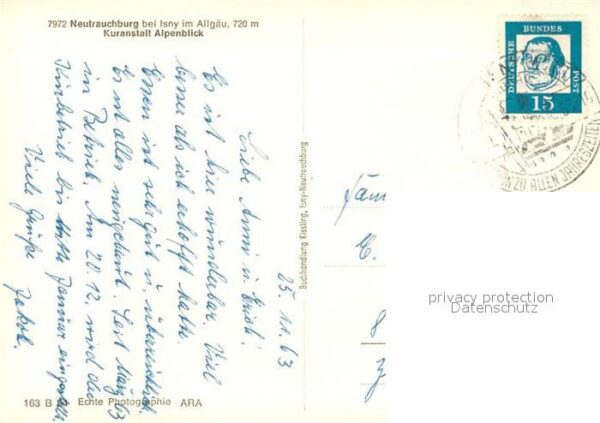 7972 Neutrauchburg bei Isny im Allgäu, 720 m
Kuranstalt Alpenblick
25.11.63
Liebe Anni u. 
Es ist hier wunderbar. Viel
besser als ich erhofft hatte.
Essen ist sehr gut u. überreichlich.
Es ist alles neugebaut. Seit März 63
in Betrieb. Am 20.12. wird der
Kurbetrieb bis Januar eingestellt.
Viele Grüße
Jakob.
Buchhandlung Kissling, Isny-Neutrauchburg
163 B Echte Photographie ARA
DEUTSCHE
BUNDES
POST
15
ZU ALLEN JAHRESZEITEN
Fam
E.
8
privacy protection
Datenschutz